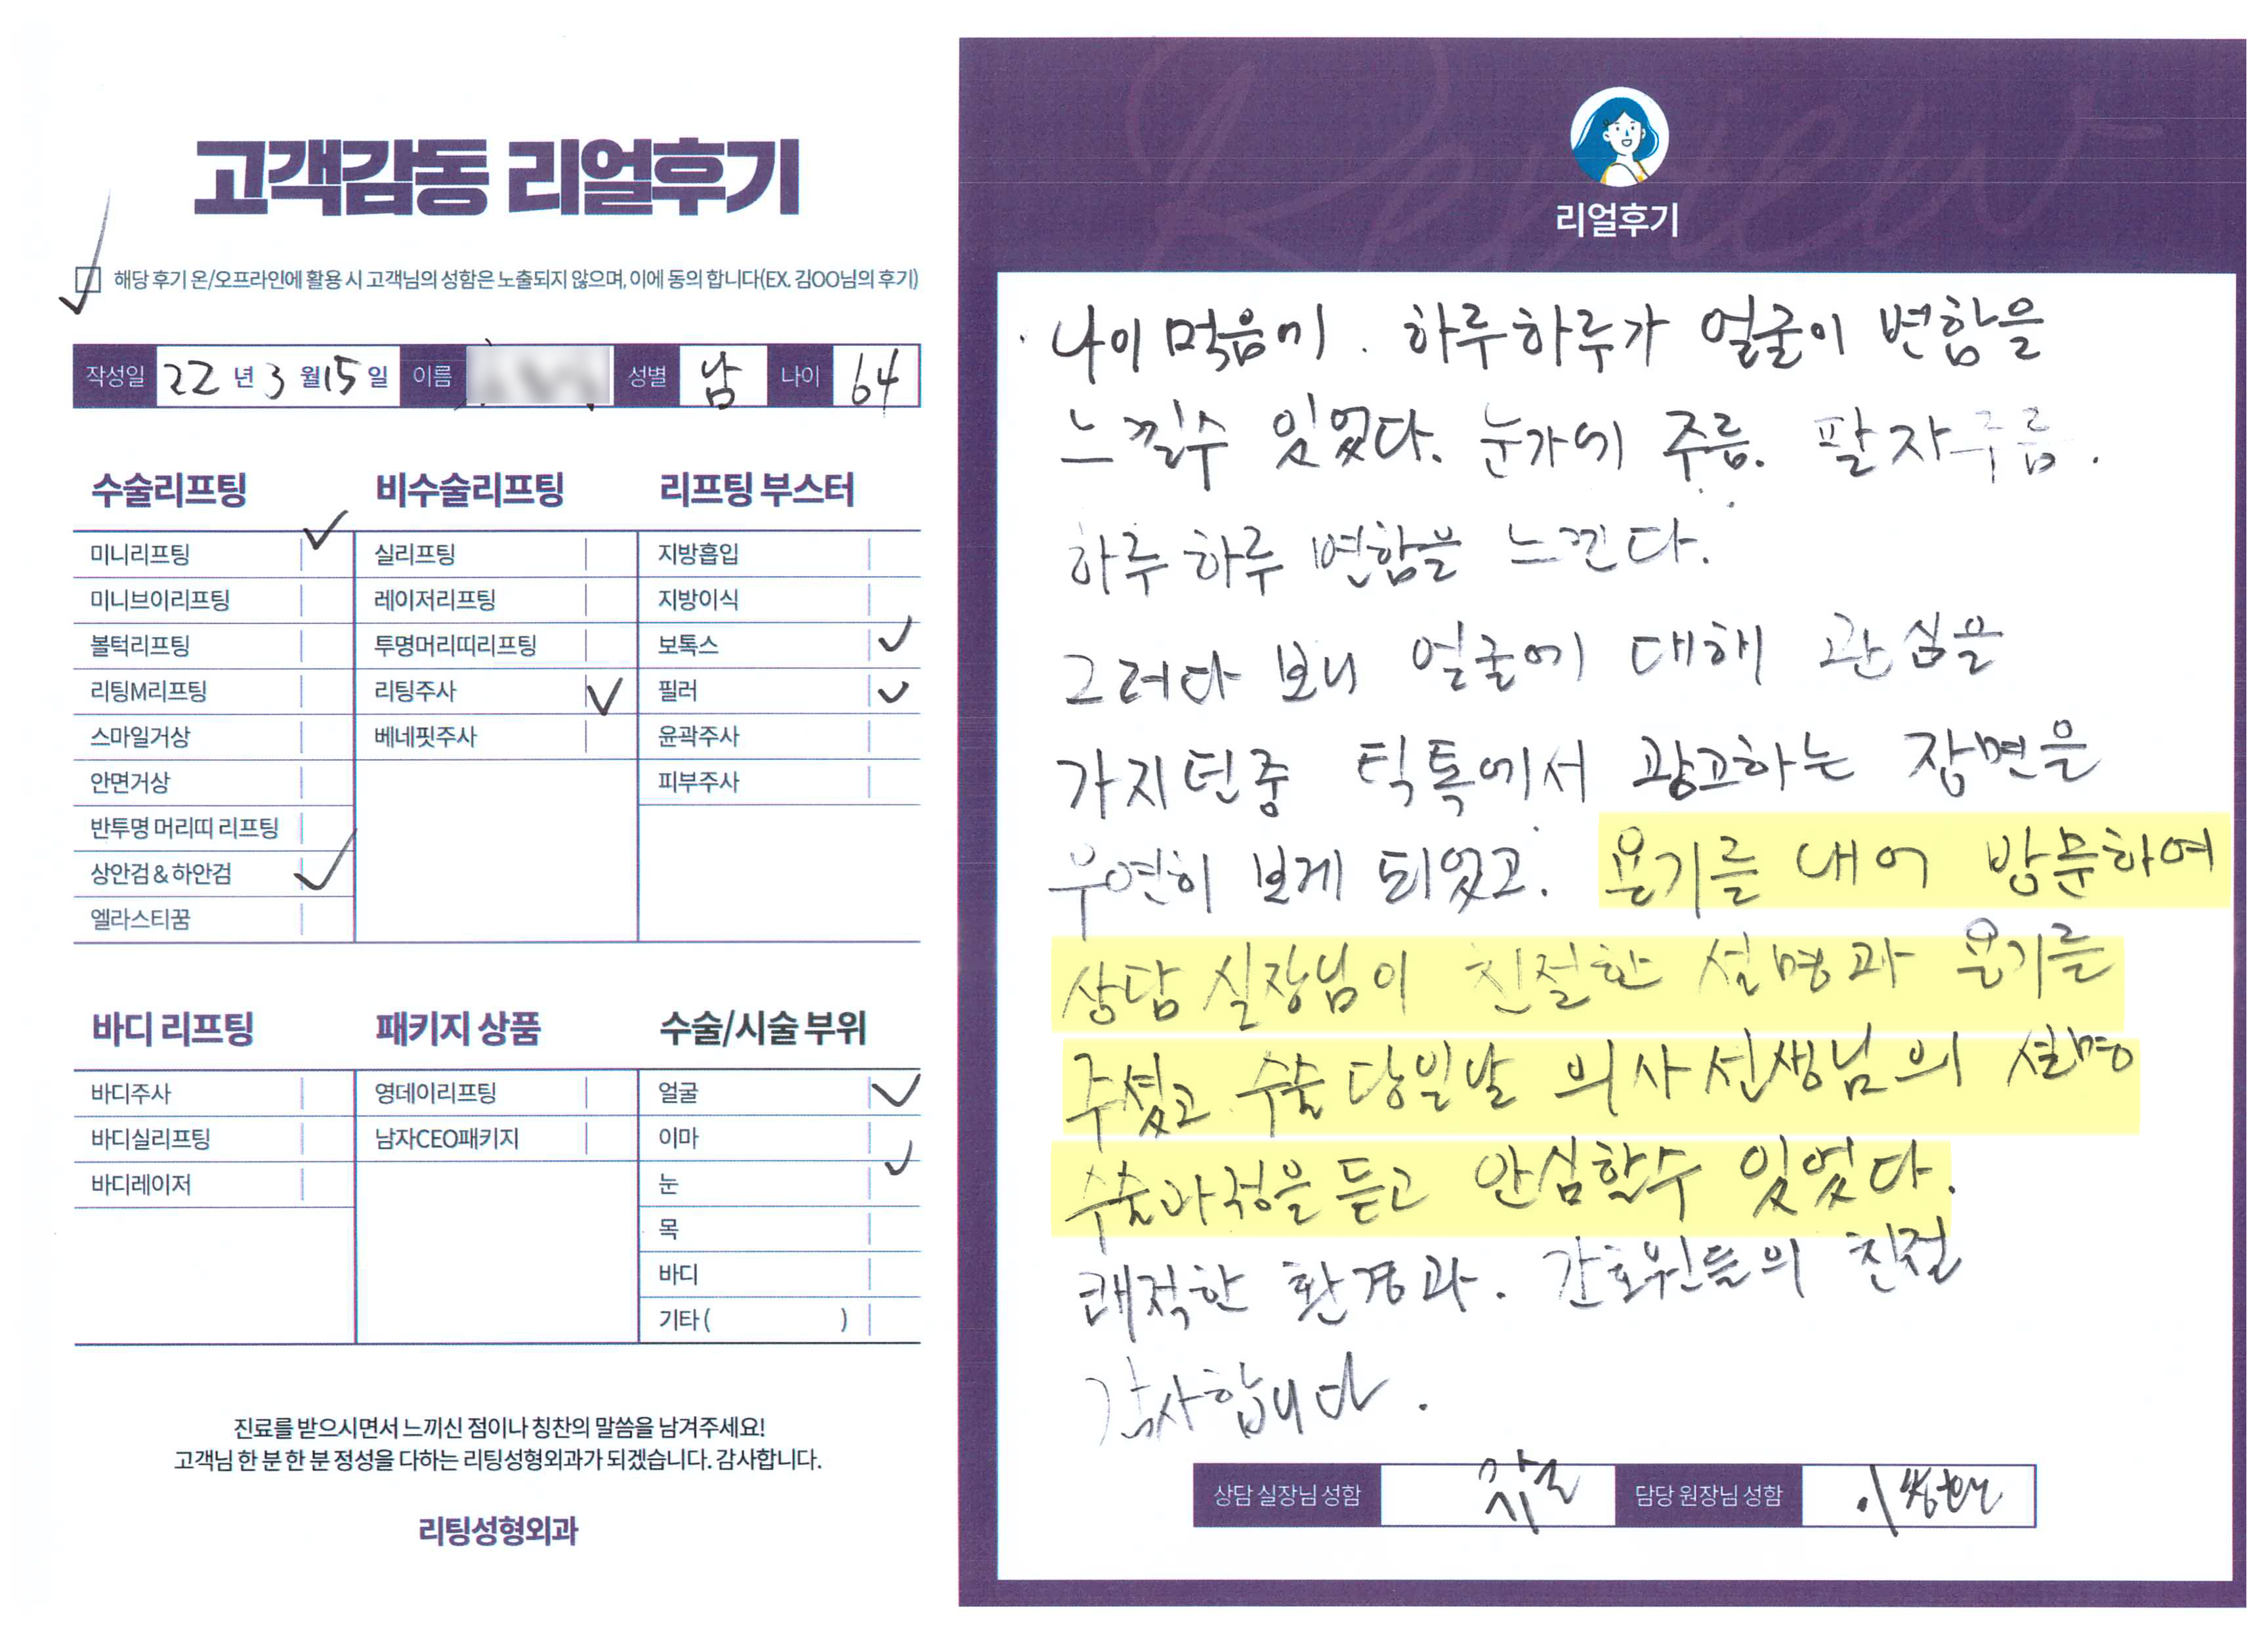 고객감동 리얼후기
해당 후기 온/오프라인에 활용 시 고객님의 성함은 노출되지 않으며, 이에 동의 합니다(EX. 김OO님의 후기)
작성일 22 년 3 월 15 일 이름 성별 남 나이 64
수술리프팅
미니리프팅
미니브이리프팅
볼턱리프팅
리팅M리프팅
스마일거상
안면거상
반투명 머리띠 리프팅
상안검 & 하안검
엘라스티꿈
비수술리프팅
실리프팅
레이저리프팅
투명머리띠리프팅
리팅주사
베네핏주사
리프팅 부스터
지방흡입
지방이식
보톡스
필러
윤곽주사
피부주사
바디 리프팅
바디주사
바디실리프팅
바디레이저
패키지 상품
영데이리프팅
남자CEO패키지
수술/시술 부위
얼굴
이마
눈
목
바디
기타 ( )
진료를 받으시면서 느끼신 점이나 칭찬의 말씀을 남겨주세요!
고객님 한 분 한 분 정성을 다하는 리팅성형외과가 되겠습니다. 감사합니다.
리팅성형외과
Review
리얼후기
나이 먹음이. 하루하루가 얼굴이 변함을
느낄수 있었다. 눈가에 주름. 팔자주름.
하루하루 변함을 느낀다.
그러다 보니 얼굴에 대해 관심을
가지던중 틱톡에서 광고하는 장면을
우연히 보게 되었고. 용기를 내어 방문하여
상담 실장님이 친절한 설명과 용기를
주셨고 수술 당일날 의사선생님의 설명
수술과정을 듣고 안심할수 있었다.
쾌적한 환경과. 간호원들의 친절
감사합니다.
상담 실장님 성함 담당 원장님 성함